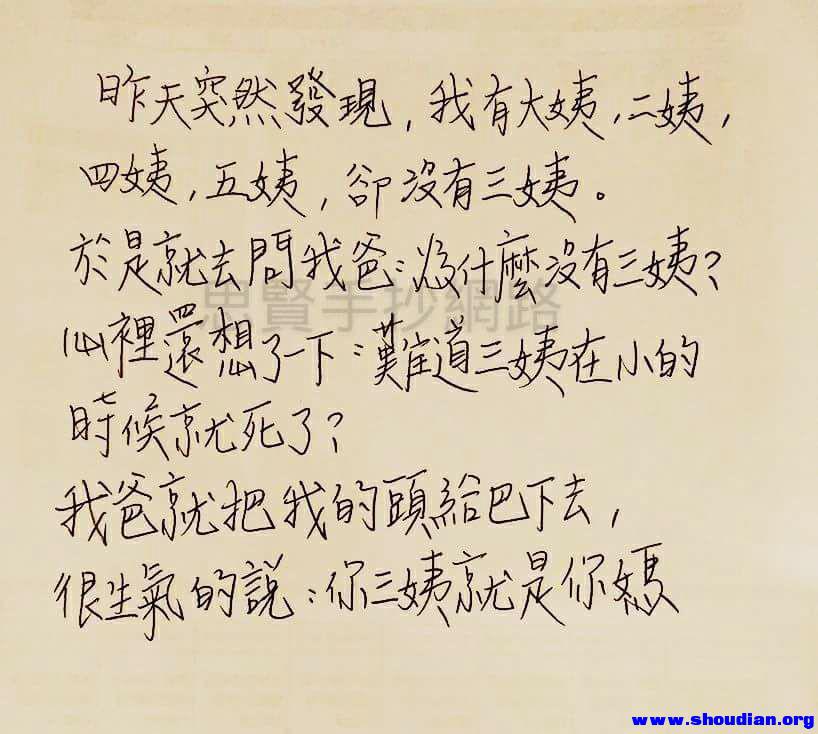 昨天突然發現，我有大姨，二姨，
四姨，五姨，卻沒有三姨。
於是就去問我爸：為什麼沒有三姨？
思賢手抄網路
心裡還想了一下：難道三姨在小的
時候就死了？
我爸就把我的頭給巴下去，
很生氣的說：你三姨就是你媽
www.shoudian.org